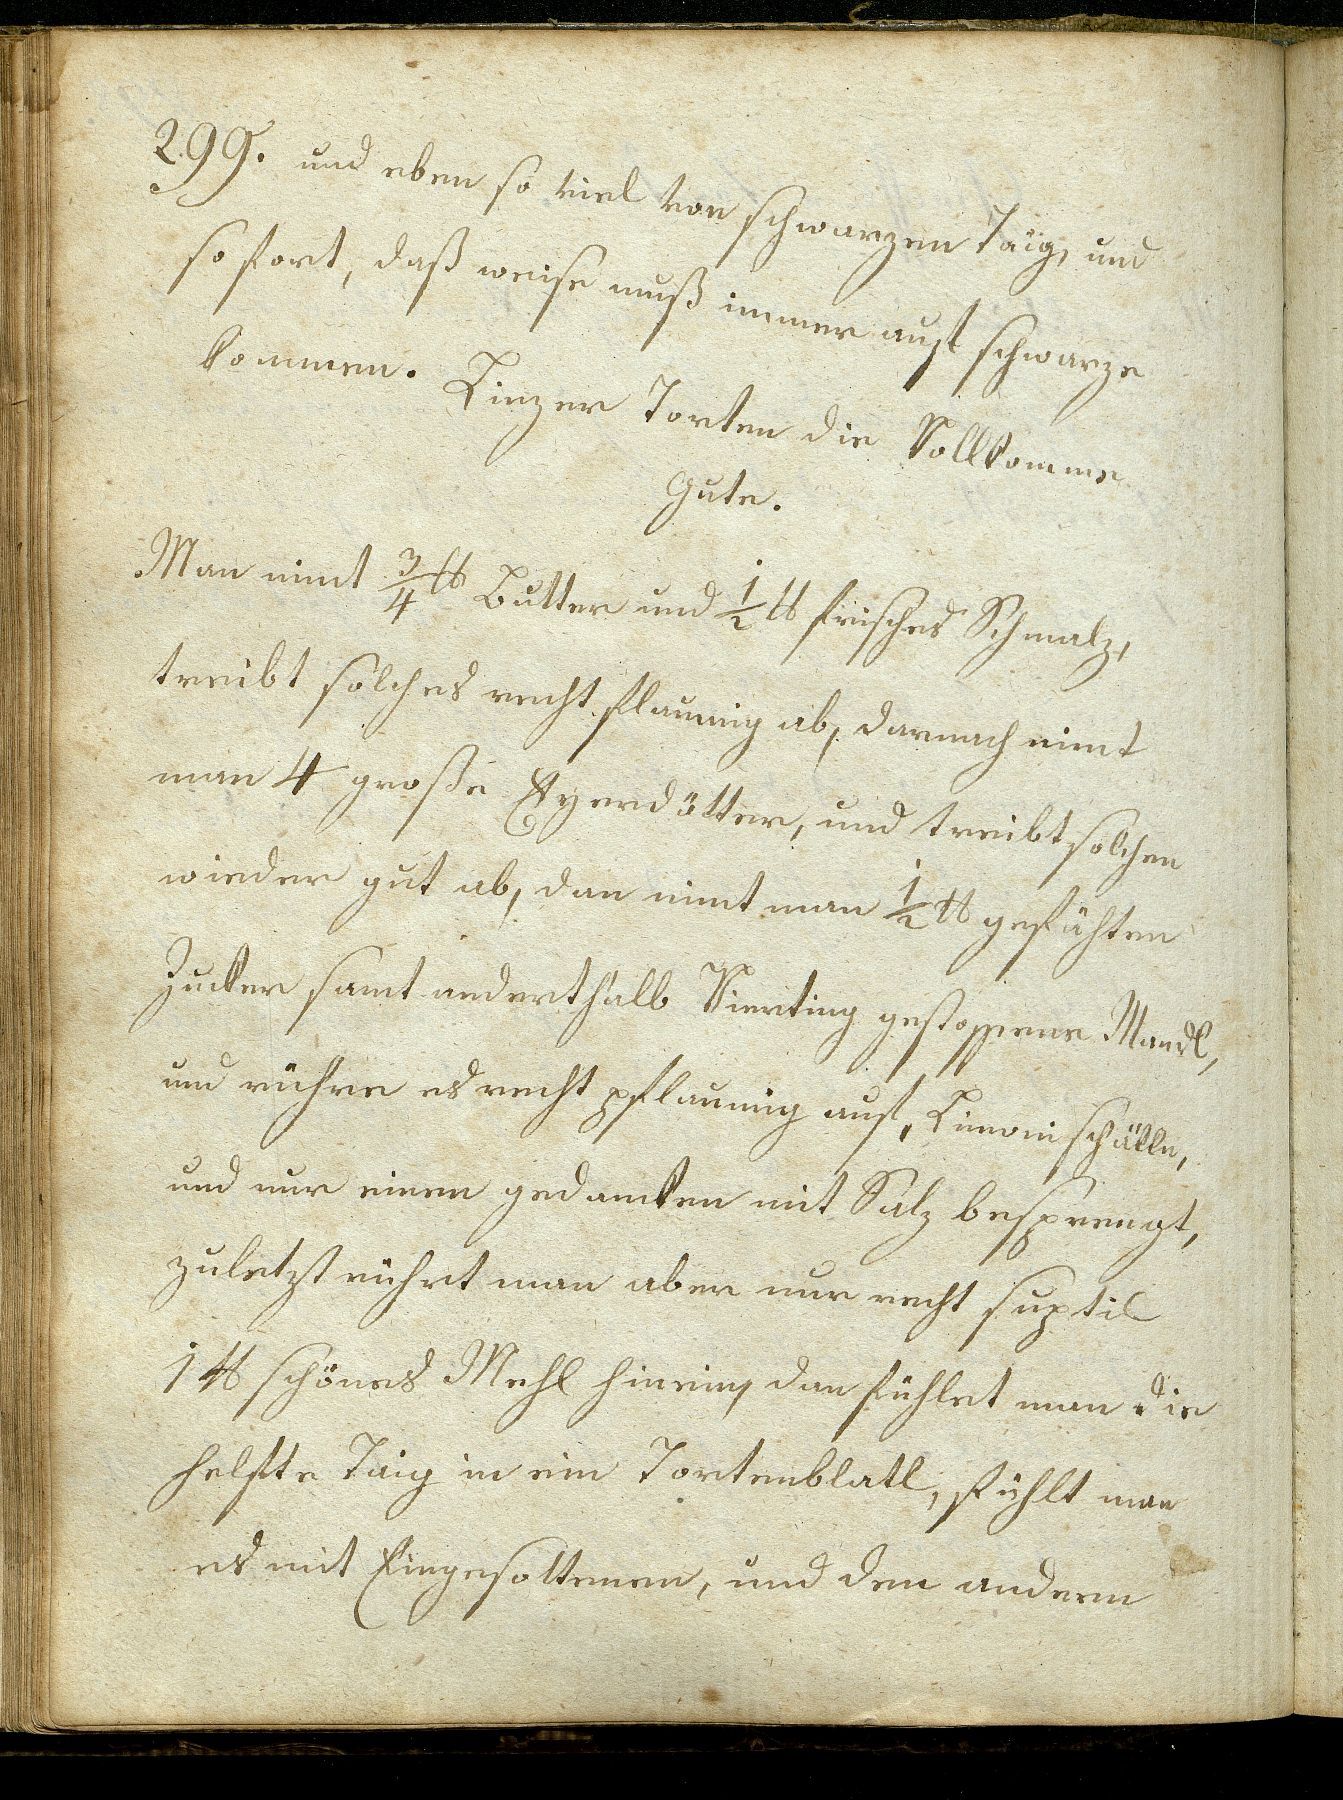 299. und eben so viel von schwarzen Taig, und
so fort, daß weise muß immer aufs schwarze
kommen.
Linzer Torten die Vollkomme
Gute.
Man nimt 3/4 ℔ Butter und 1/2 ℔ frisches Schmalz,
treibt solches recht flaumig ab, darnach nimt
man 4 große Eyerdötter, und treibt solchen
wieder gut ab, dan nimt man 1/2 ℔ gefähten
Zucker samt anderthalb Vierting gestossene Mandl,
und rühre es recht pflaumig auf, Limonischälle,
und nur einen gedancken mit Salz besprengt,
zuletzt rührt man aber nur recht suptil
1 ℔ schönes Mehl hinein, dan fühlet man die
helfte Taig in ein Tortenblatl, fühlt man
es mit Eingesottenen, und den andern